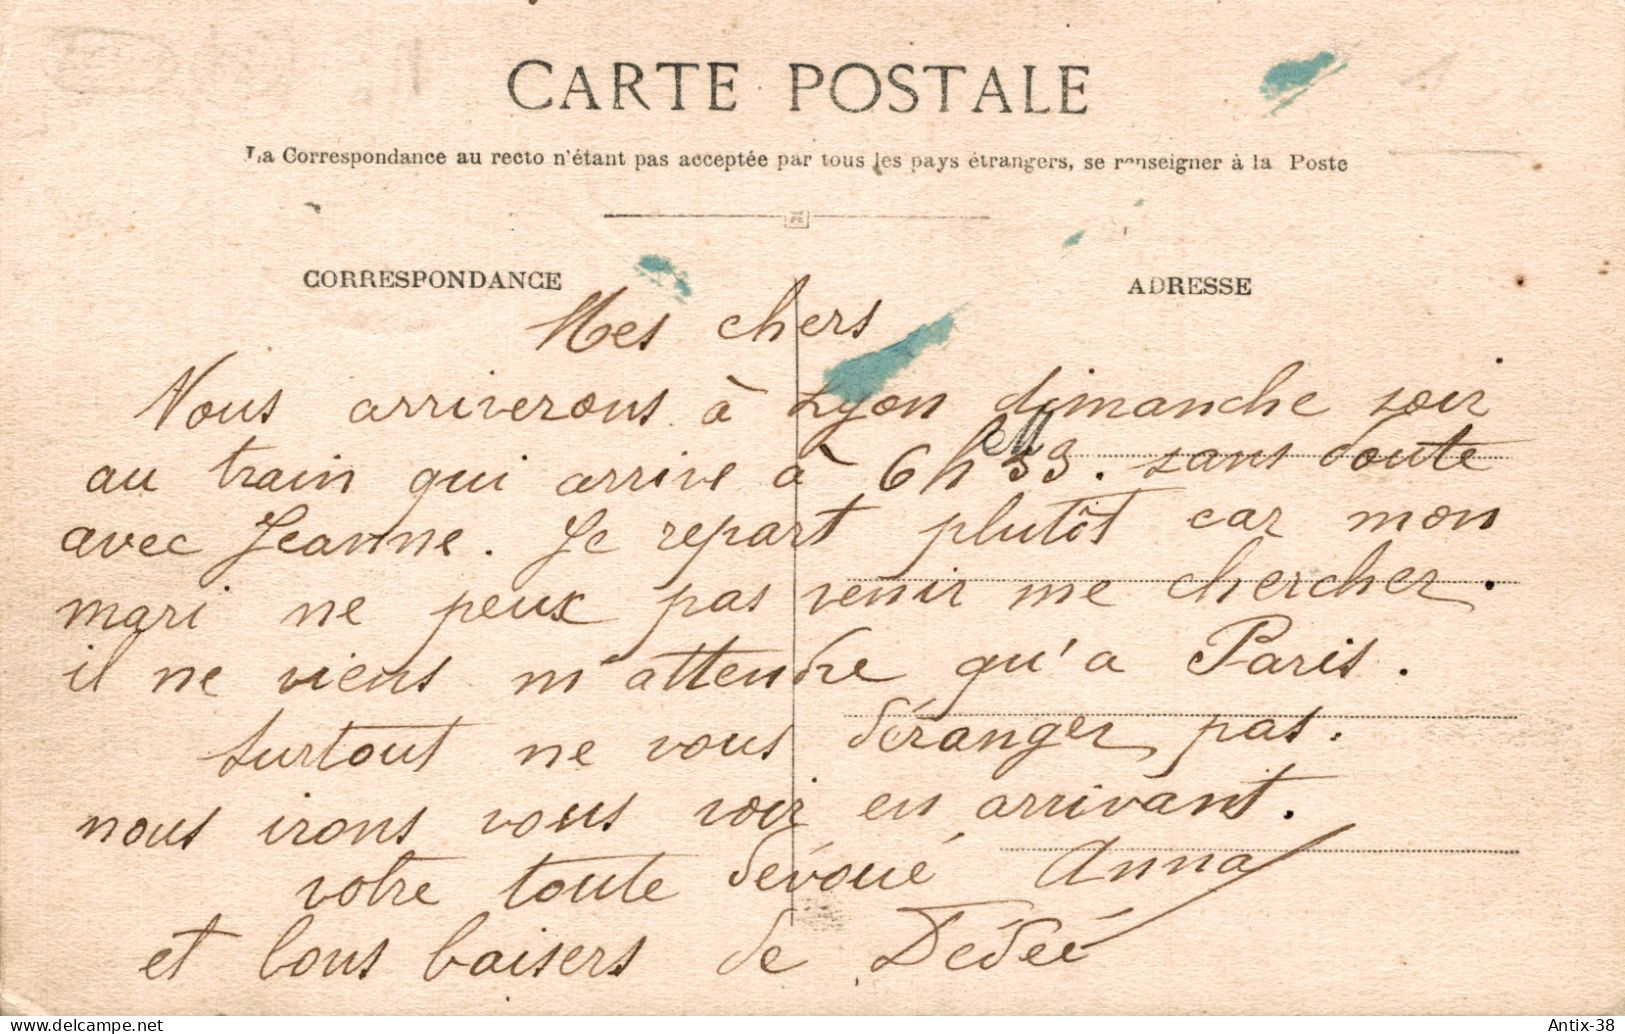 CARTE POSTALE
La Correspondance au recto n'étant pas acceptée par tous les pays étrangers, se renseigner à la Poste
CORRESPONDANCE
ADRESSE
Mes chers
Nous arriverons à Lyon dimanche soir
au train qui arrive à 6h 33. sans doute
avec Jeanne. Je repart plutôt car mon
mari ne peux pas venir me chercher.
il ne viens m'attendre qu'a Paris.
surtout ne vous déranger pas.
nous irons vous voir en arrivant.
votre toute dévoué Anna
et bons baisers de Dédée
Antix-38